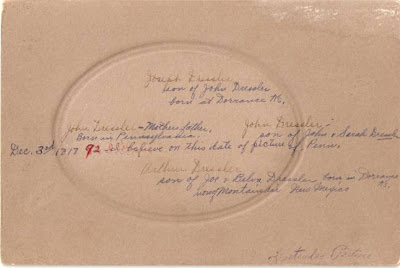 Joseph Dressler
son of John Dressler
born at Dorrance Ks.
John Dressler - Mothers father. John Dressler -
Born in Pennsylvania. son of John & Sarah Dressler
Dec. 3rd 1917 92 I believe on this date of picture of, Penn.
Arthur Dressler
son of Joe & Belva Dressler, born in Dorrance
Ks.
now Mountainair New Mexico
Picture